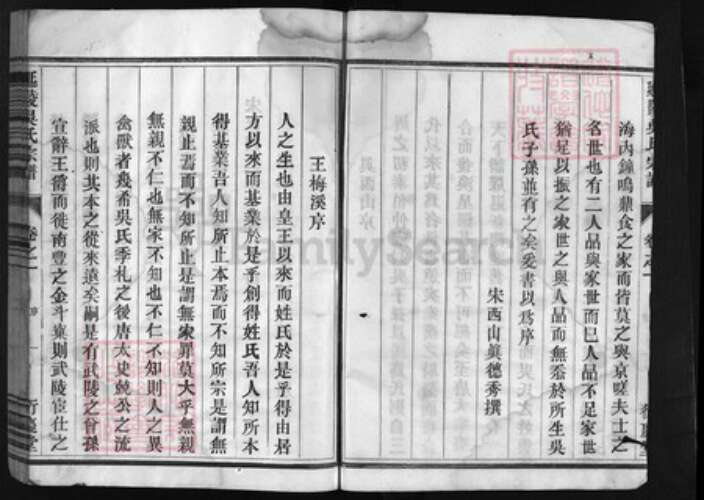 海內鐘鳴鼎食之家而皆莫之與京嗟夫士之
名世也有二人品與家世而已人品不足家世
猶足以振之家世之與人品而無忝於所生吳
氏子孫並有之矣爰書以爲序
宋西山眞德秀撰
王梅溪序
人之生也由皇王以來而姓氏於是乎得由君
方以來而基業於是乎創得姓氏吾人知所本
得基業吾人知所止本焉而不知所宗是謂無
親止焉而不知所止是謂無家罪莫大乎無親
無親不仁也無家不知也不仁不知則人之異
禽獸者幾希吳氏季札之後唐太史兢公之流
派也則其本之從來遠矣嗣是有武陵之曾孫
宣辭王爵而徙南豐之金斗窠則武陵宦仕之
延陵吳氏宗譜
卷之一
序
一
行慶堂
FamilySearch